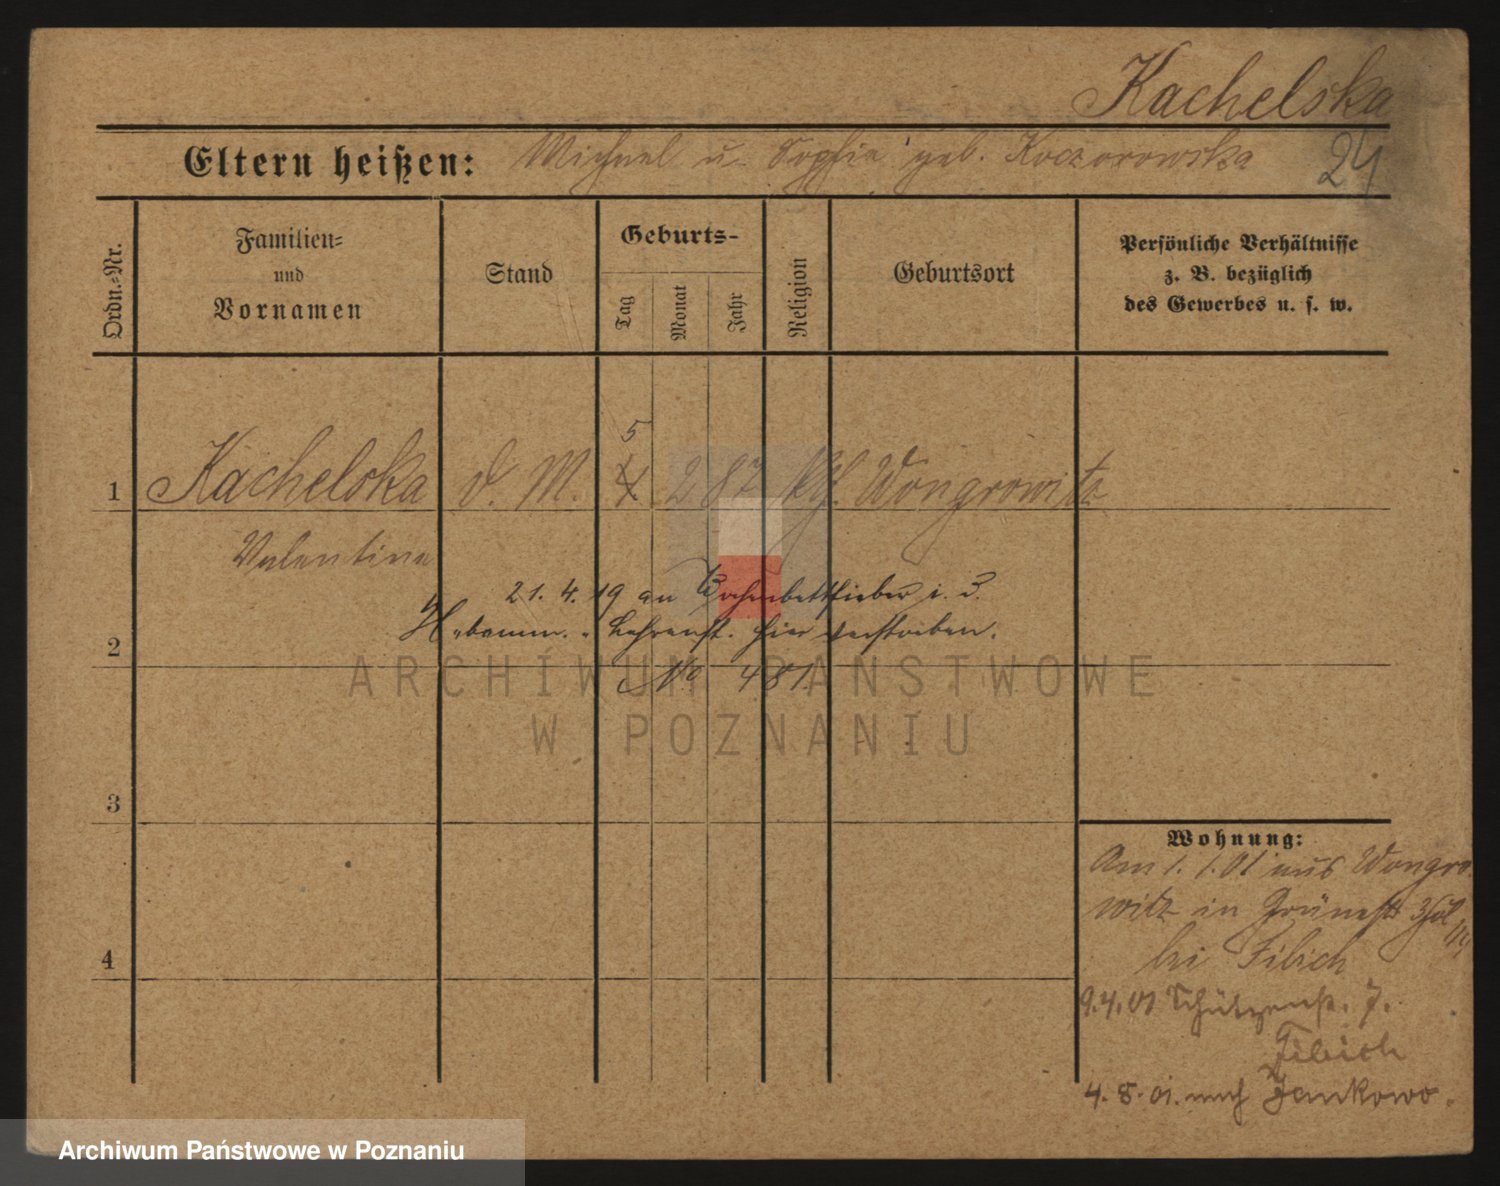 Kachelska
Eltern heißen: Michael u. Sophia geb. Koczorowska
24
Ordn.-Nr.
Familien=
und
Vornamen
Stand
Geburts-
Tag
Monat
Jahr
Religion
Geburtsort
Persönliche Verhältnisse
z. B. bezüglich
des Gewerbes u. s. w.
5
1 Kachelska d. M. 4 2 87 Wongrowitz
Valentine
21. 4. 19 an Wochenbettfieber i. d.
Hebamm. Lehranst. hier verstorben.
2
No 481.
3
4
Wohnung:
Am 1. 1. 01 aus Wongro-
witz in Grünestr.
bei Filich
9.4.01 Schützenstr. 7.
Filich
4. 8. 01. nach Jankowo.
ARCHIWUM PAŃSTWOWE
W POZNANIU
Archiwum Państwowe w Poznaniu